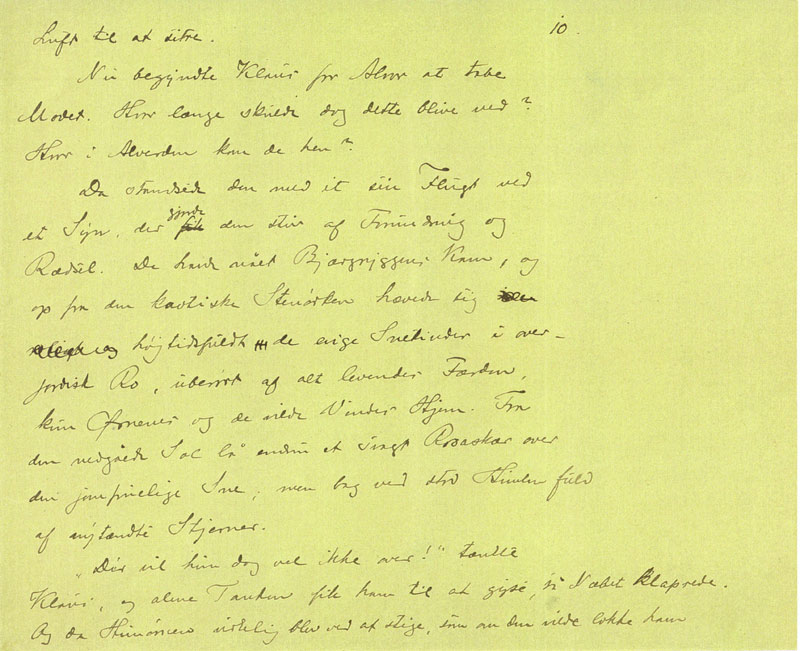 10.
Luft til at sitre.
Nu begyndte Klaus for Alvor at tabe
Modet. Hvor længe skulde dog dette blive ved?
Hvor i Alverden kom de hen?
Da standsede den med et sin Flugt ved
et Syn, der gjorde den stiv af Forundring og
Rædsel. De havde nået Bjærgryggens Kam, og
op fra den kaotiske Stenørken hævede sig
højtidsfuldt de evige Snetinder i over-
jordisk Ro, uberørt af alt levendes Færden,
kun Ørnenes og de vilde Vindes Hjem. Fra
den nedgåede Sol lå endnu et svagt Rosaskær over
den jomfruelige Sne, men bag ved stod Himlen fuld
af nytændte Stjerner.
"Dér vil hun dog vel ikke over!" tænkte
Klaus, og alene Tanken fik ham til at gyse, så Næbet klaprede.
Og da virkelig blev ved at stige, som om den vilde lokke ham